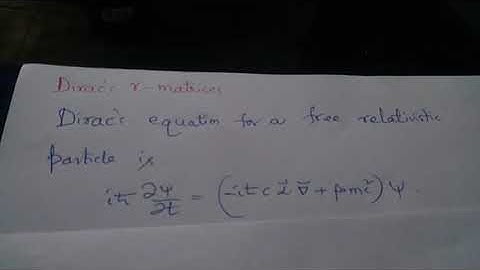 Dirac's γ-matrices
Dirac's equation for a free relativistic
particle is
iħ ∂ψ/∂t = (-iħc α⃗ ∇⃗ + βmc²) ψ.